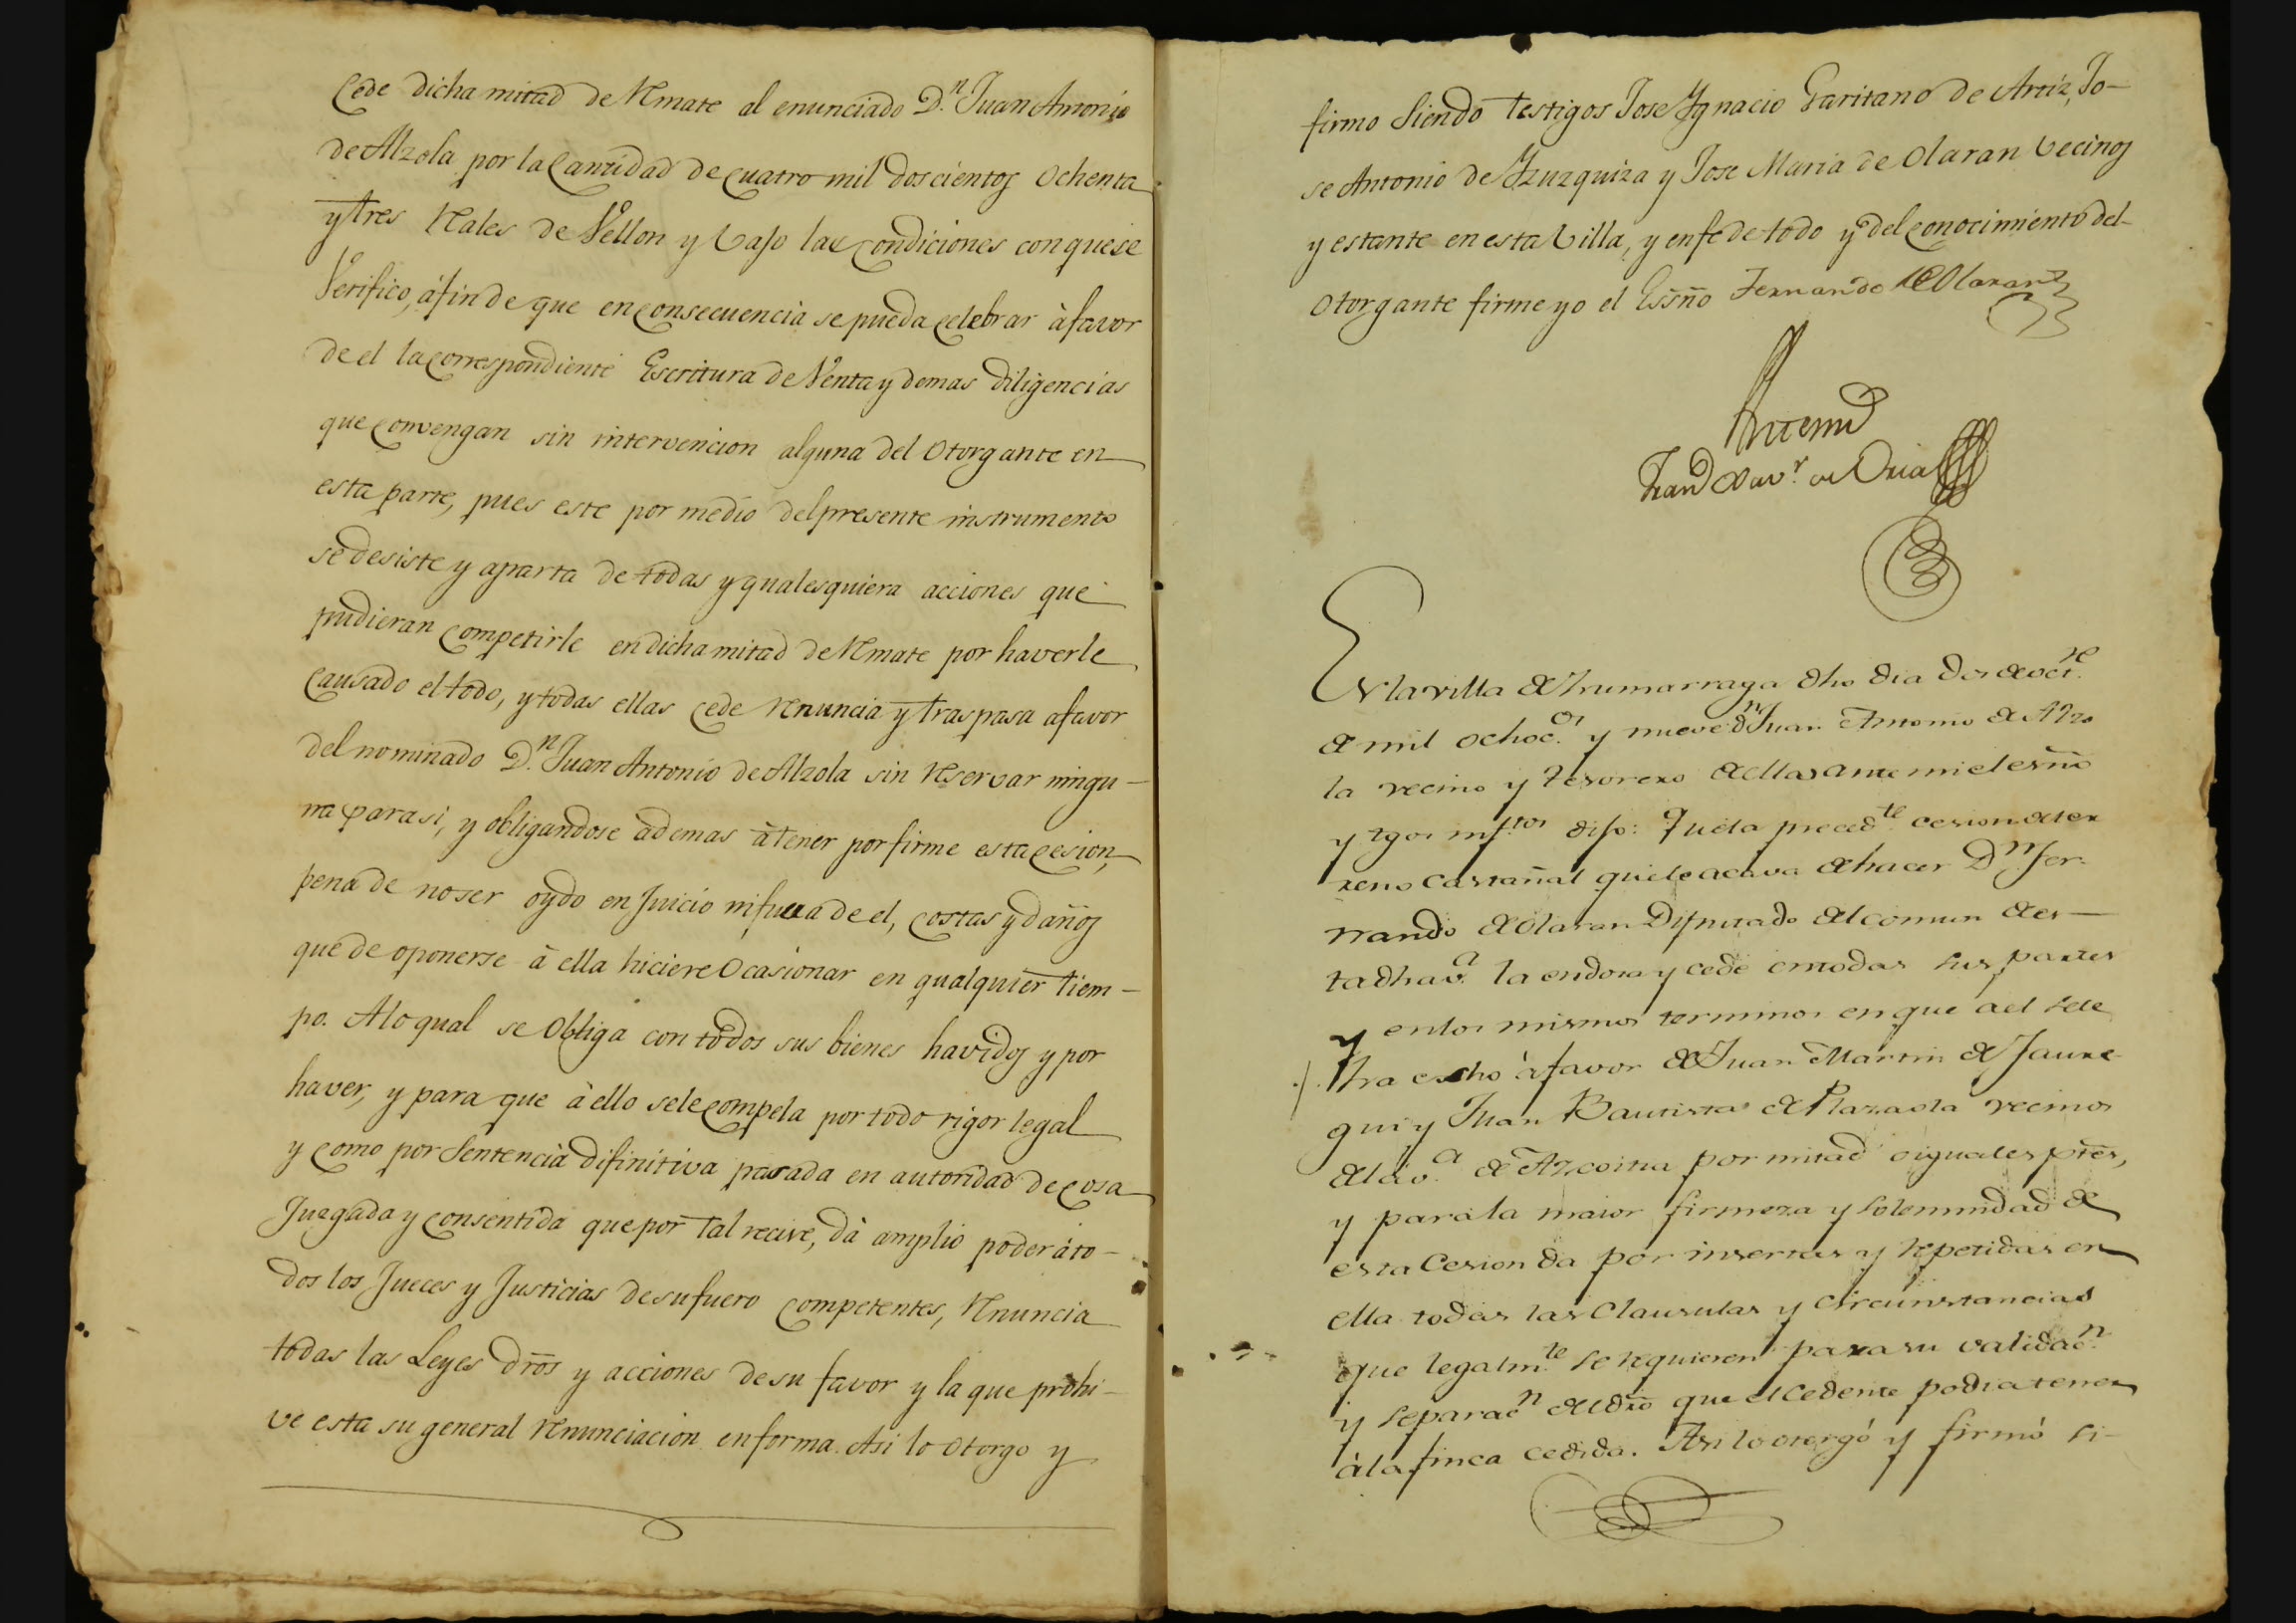 Cede dicha mitad de Remate al enunciado D.n Juan Antonio
de Alzola por la Cantidad de cuatro mil doscientos ochenta
y tres Reales de Vellon y bajo las condiciones con que se
Verifico, áfin de que en consecuencia se pueda celebrar à favor
de el la correspondiente Escritura de Venta y demas diligencias
que convengan sin intervencion alguna del Otorgante en
esta parte, pues este por medio del presente instrumento
se desiste y aparta de todas y qualesquiera acciones que
pudieran competirle en dicha mitad de Remate por haverle
Causado el todo, y todas ellas cede Renuncia y traspasa a favor
del nominado D.n Juan Antonio de Alzola sin Reservar ningu-
na para si, y obligandose ademas à tener por firme esta cesion,
pena de no ser oydo en Juicio ni fuera de el, costas y daños
que de oponerse à ella hiciere Ocasionar en qualquier tiem-
po. Alo qual se Obliga con todos sus bienes havidos y por
haver, y para que à ello sele compela por todo rigor legal
y como por Sentencia difinitiva pasada en autoridad de cosa
Juzgada y consentida que por tal recive, dà amplio poder áto-
dos los Jueces y Justicias de su fuero competentes, Renuncia
todas las Leyes dros y acciones de su favor y la que prohi-
ve esta su general Renunciacion en forma. Asi lo Otorgo y
firmo Siendo testigos Jose Ygnacio Garitano de Artiz, Jo-
se Antonio de Yzuzquiza y Jose Maria de Olaran Vecinos
y estante en esta Villa, y en fe de todo y del conocimiento del
Otorgante firme yo el Essño Fernando de Olaran
Antemi
Fran.co Xav.r de Oria
En la villa de Zumarraga dho dia dos de oct.re
de mil ochoc.os y nueve d.n Juan Antonio de Alzo
la vecino y tesorero de ella ante mi el esno
y tgos inf.tos dijo: Que la preced.te cesion deter
reno castañal que le acava de hacer D.n Fer-
nando de Olaran Diputado del comun de es-
ta dha v.a la endosa y cede en todas sus partes
y en los mismos terminos en que ael sele
ha echo à favor de Juan Martin de Jaure-
gui y Juan Bautista de Plazaola vecinos
de la v.a de Azcoitia por mitad o iguales ptes,
y para la maior firmeza y solemnidad de
esta Cesion da por insertas y repetidas en
ella todas las Clausulas y circunstancias
que legalm.te se requieren para su validac.n
y separac.n del dro que el Cedente podia tener
à la finca cedida. Asi lo otorgó y firmó si-